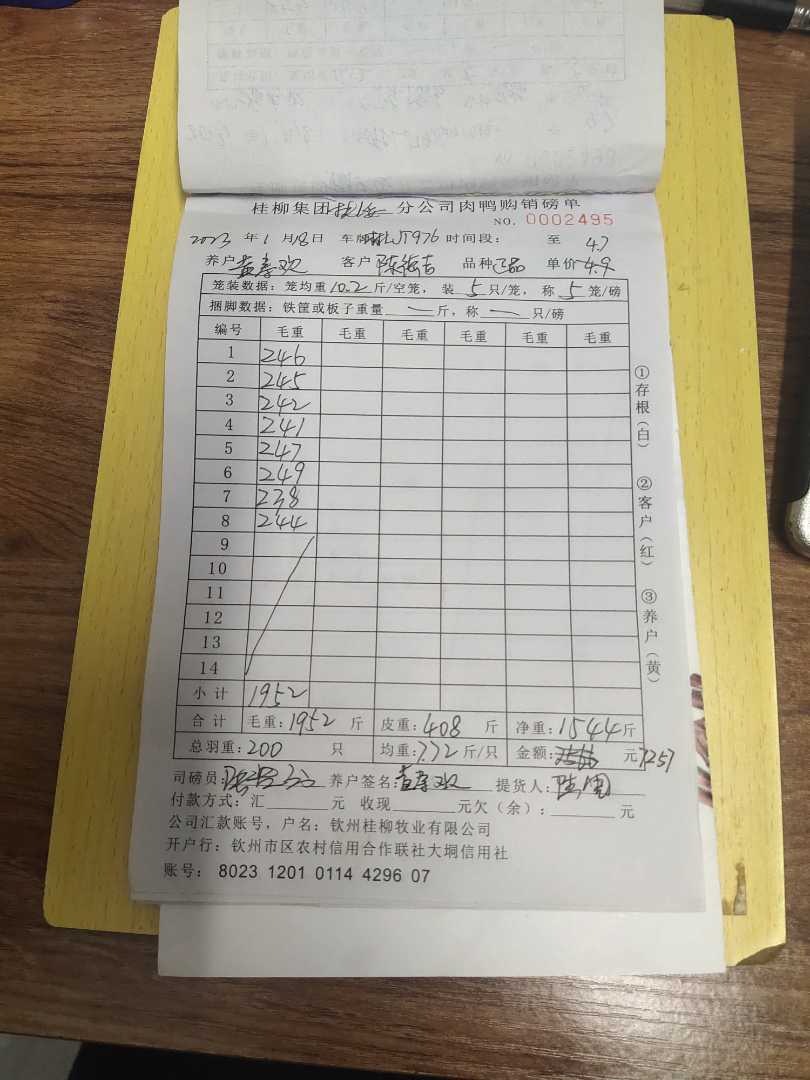 桂柳集团 分公司肉鸭购销磅单
NO. 0002495
2023 年 1 月 18 日 车牌 JT976 时间段: 至 4.7
养户 黄春欢 客户 陈 吉 品种 正品 单价 4.9
笼装数据: 笼均重 10.2 斤/空笼, 装 5 只/笼, 称 5 笼/磅
捆脚数据: 铁筐或板子重量 — 斤, 称 — 只/磅
编号 毛重 毛重 毛重 毛重 毛重 毛重
1 246
2 245
3 242
4 241
5 247
6 249
7 238
8 244
9
10
11
12
13
14
小计 1952
合计 毛重: 1952 斤 皮重: 408 斤 净重: 1544 斤
总羽重: 200 只 均重: 7.72 斤/只 金额: 元 7257
司磅员: 养户签名: 黄春欢 提货人:
付款方式: 汇 元 收现 元欠(余): 元
公司汇款账号, 户名: 钦州桂柳牧业有限公司
开户行: 钦州市区农村信用合作联社大垌信用社
账号: 8023 1201 0114 4296 07
①存根(白)
②客户(红)
③养户(黄)